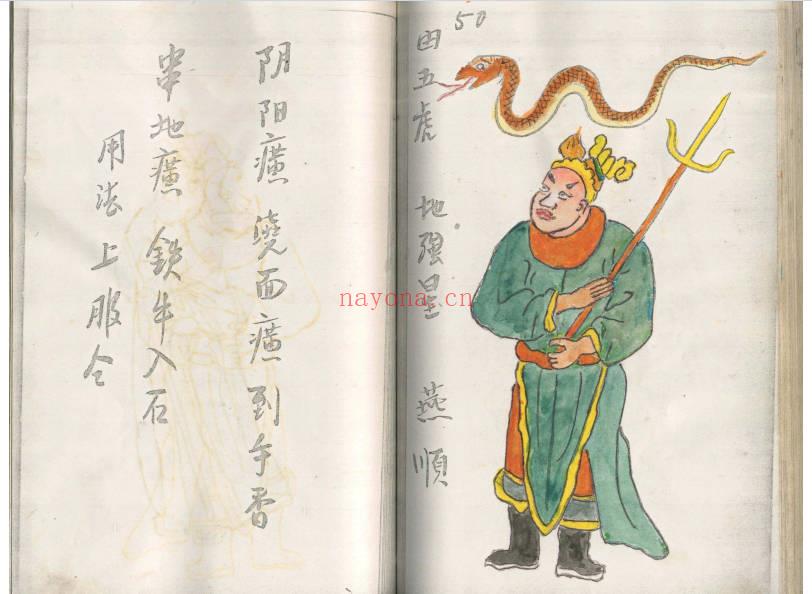 50
田五虎 地强星 燕順
阴阳癀 繞面癀 到手香
串地癀 鉄牛入石
用法 上服仝
nayona.cn